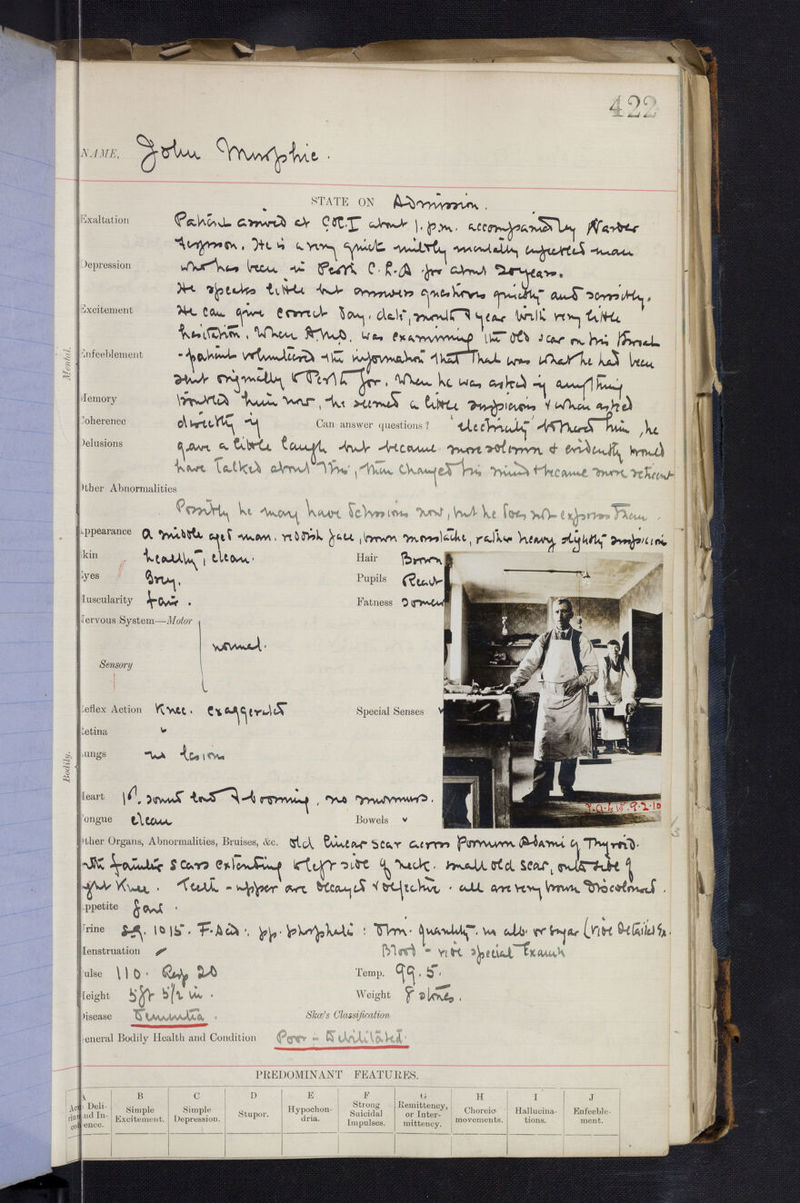 422
NAME, John Murphie.
STATE ON Admission.
Exaltation Patient arrived at about 1. p.m. accompanied by Warder
Ferguson. He is a very quiet mildly mentally enfeebled man
Depression who has been in Perth C.L.D for about 20 years.
He speaks little but answers questions quietly and sensibly.
Excitement He can give correct day, date, month & year with very little
hesitation. When was examining the old scar on his throat
Mental.
Enfeeblement - patient volunteered the information that that was what he had been
sent originally to Perth for. When he was asked if anything
Memory troubled him now, he seemed a little suspicious & when asked
Coherence directly if Can answer questions? 'electricity' bothered him, he
Delusions gave a little laugh but became more solemn & evidently would
have talked about this, then changed his mind & became more reticent
Other Abnormalities
Possibly he may have delusions now, but he does not express them.
Appearance a middle aged man, reddish face, brown moustache, rather heavy slightly suspicious
Skin healthy, clean. Hair Brown
Eyes Grey. Pupils React
Muscularity fair. Fatness
Nervous System—Motor
normal.
Sensory
Reflex Action Knee. exaggerated Special Senses
Retina
Lungs no lesions
Bodily.
Heart 1st. sound loud & booming, no murmurs.
Tongue clean Bowels
9.2.10
Other Organs, Abnormalities, Bruises, &c. Old linear scar across Pomum Adami of Thyroid.
with fainter scars extending to left side of neck. small old scar, outer side of
right Knee. Teeth - upper are decayed & defective. all are very brown discoloured.
Appetite Good.
Urine S.G. 1015. F. Acid. pp. phosphatic: Urm. quantity. no alb. or sugar (vide detailed Ex.
Menstruation Blood - vide special Exam
Pulse 110. Resp 20 Temp. 99.5.
Height 5ft 5½ in. Weight 8 stones.
Disease Dementia. Skae's Classification
General Bodily Health and Condition Poor - Debilitated.
PREDOMINANT FEATURES.
A B C D E F G H I J
Acute Delirium and Incoherence. Simple Excitement. Simple Depression. Stupor. Hypochondria. Strong Suicidal Impulses. Remittency, or Intermittency. Choreic movements. Hallucinations. Enfeeblement.